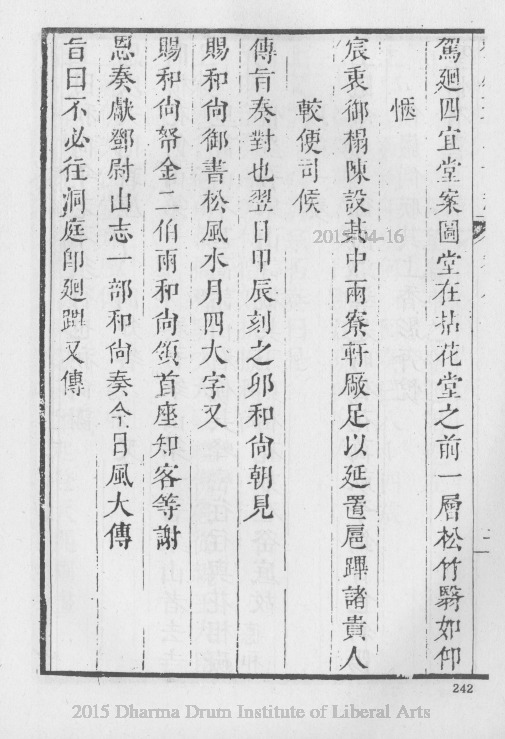 駕廻四宜堂案圖堂在拈花堂之前一層松竹翳如仰
愜
宸衷御榻陳設其中兩寮軒厰足以延置扈蹕諸貴人
較便司候
傳旨奏對也翌日甲辰刻之卯和尙朝見
賜和尙御書松風水月四大字又
賜和尙帑金二伯兩和尙領首座知客等謝
恩奏獻鄧尉山志一部和尙奏今日風大傳
旨曰不必往洞庭卽廻蹕又傳
2015-04-16
242
2015 Dharma Drum Institute of Liberal Arts